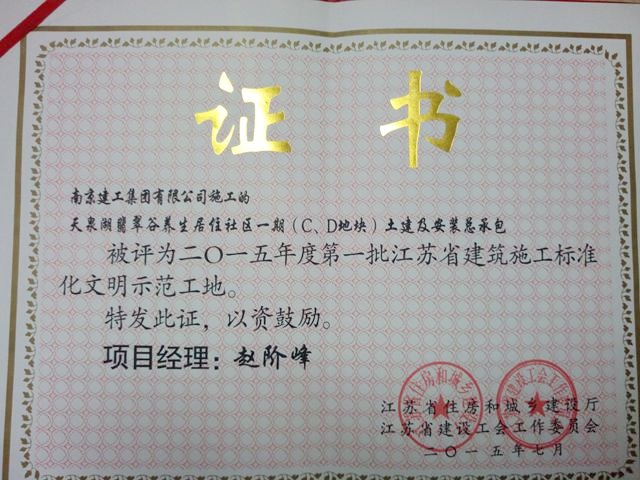 证书
南京建工集团有限公司施工的
天泉湖翡翠谷养生居住社区一期（C、D地块）土建及安装总承包
被评为二〇一五年度第一批江苏省建筑施工标准
化文明示范工地。
特发此证，以资鼓励。
项目经理：赵阶峰
江苏省住房和城乡建设厅
江苏省建设工会工作委员会
二〇一五年七月